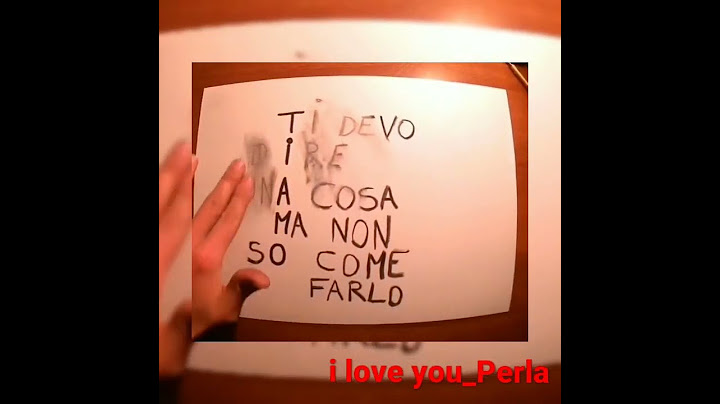 TI DEVO
DIRE
UNA COSA
MA NON
SO COME
FARLO
i love you_Perla